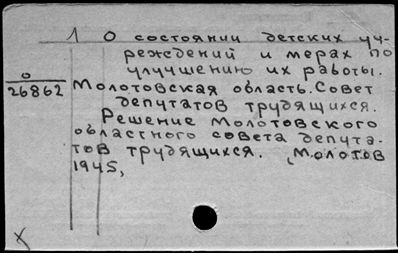 1 О состоянии детских уч-
реждений и мерах по
улучшению их работы.
О
26862
Молотовская область. Совет
депутатов трудящихся.
Решение Молотовского
областного совета депута-
тов трудящихся. Молотов
1945,
X